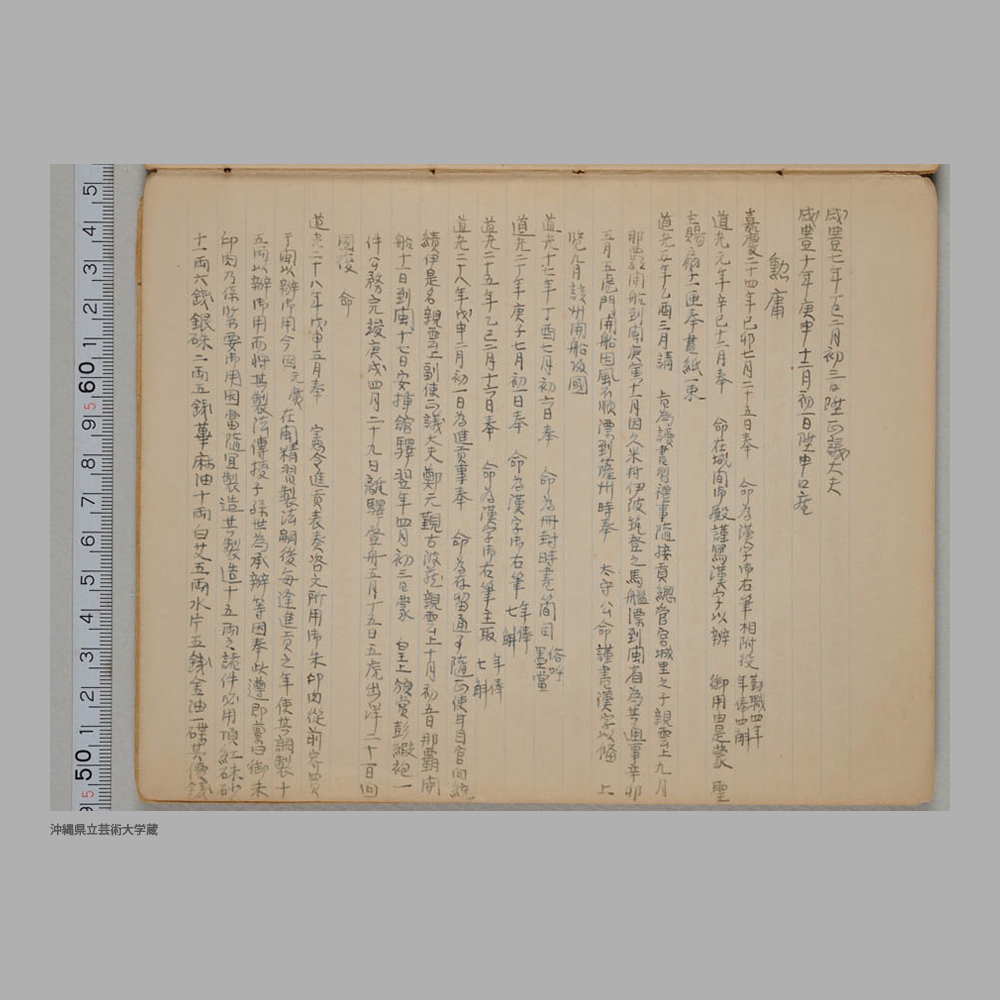 咸豊七年丁巳二月初三日陞正議大夫
咸豊十年庚申十二月初一日陞申口座
勲庸
嘉慶二十四年己卯七月二十五日奉 命為漢字御右筆相附役 勤職四年 年俸四斛
道光元年辛巳十二月奉 命在城間御殿謹寫漢字以辨 御用由是蒙 聖
主賜扇子一匣奉書紙一束
道光五年乙酉三月請 旨為讀書習禮事隨接貢總官宮城里之子親雲上九月
那覇開船到閩庚寅十一月因久米村伊波筑登之馬艦漂到閩省為其通事辛卯
五月五虎門開船因風不順漂到薩州時奉 太守公命謹書漢字以備 上
覧九月該州開船改國
道光十七年丁酉七月初六日奉 命為冊封時書簡司 俗呼墨當
道光二十年庚子七月初一日奉 命為漢字御右筆 年俸七斛
道光二十五年乙巳二月十六日奉 命為漢字御右筆主取 年俸七斛
道光二十八年戊申二月初一日為進貢事奉 命為存留通事隨正使耳目官向統
績伊是名親雲上副使正議大夫鄭元覲古波蔵親雲上十月初五日那覇開
船十六日到閩十七日安揷舘驛翌年四月初三日蒙 皇上頒賞彭緞袍一
件公務完竣庚戌四月二十九日離驛登舟五月十五日五虎出洋二十一日回
國復 命
道光二十八年戊申五月奉 憲令進貢表奏咨文所用御朱印肉從前齊買
于閩以辨御用今因元覲在閩精習製法嗣後每逢進貢之年使其調製十
五両以辨御用而將其製法傳授子孫世為承辨等因奉此遵即禀白御朱
印肉乃係緊要御用因當隨宜製造其製造十五両之諸件必用頂紅朱砂
十一両六錢銀硃二両五錢蓖麻油十両白艾五両水片五錢金油一碟其價錢